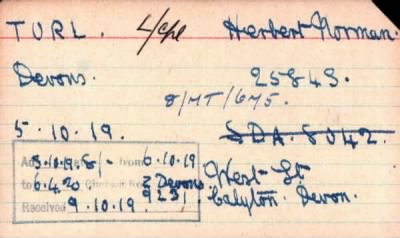 TURL. L/Cpl Herbert Norman.
Devons. 25843.
8/MT/675.
5.10.19. SDA. 8042.
5.10.19. 8/- from 6.10.19
to 6.4.20. 2 Devons. West St.
Received 9.10.19. 9231 Calyton. Devon.